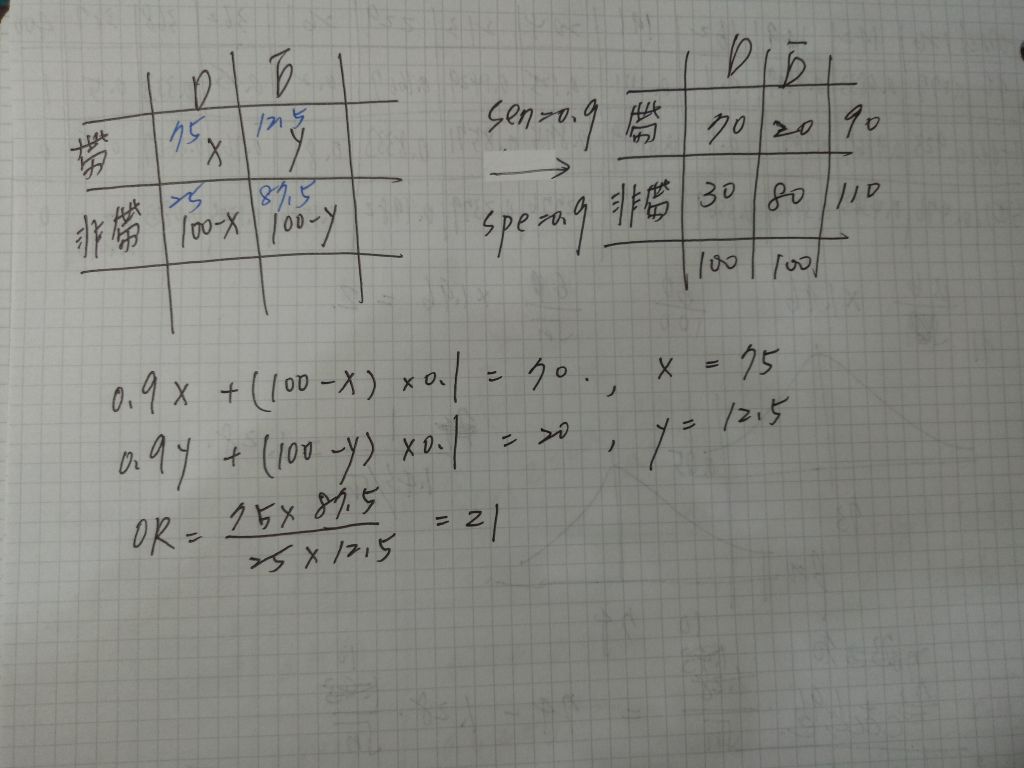 D D̄
75 12.5
帶 X Y
25 87.5
非帶 100-X 100-Y
sen=0.9
spe=0.9
D D̄
帶 70 20 90
非帶 30 80 110
100 100
0.9X + (100-X) ×0.1 = 70. , X = 75
0.9Y + (100-Y) ×0.1 = 20 , Y = 12.5
OR = 75×87.5 / 25×12.5 = 21